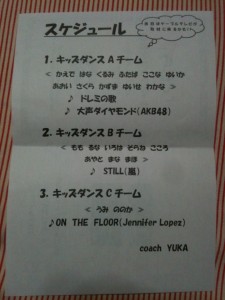 スケジュール
1. キッズダンスAチーム
< かえで はな くるみ ふたば ここな ゆいか
あおい さくら かずま ゆいせ わかな >
♪ ドレミの歌
♪ 大声ダイヤモンド(AKB48)
2. キッズダンスBチーム
< もも るな いろは そらね こころ
あやと まな まほ >
♪ STILL(嵐)
3. キッズダンスCチーム
< うみ ののか >
♪ON THE FLOOR(Jennifer Lopez)
coach YUKA